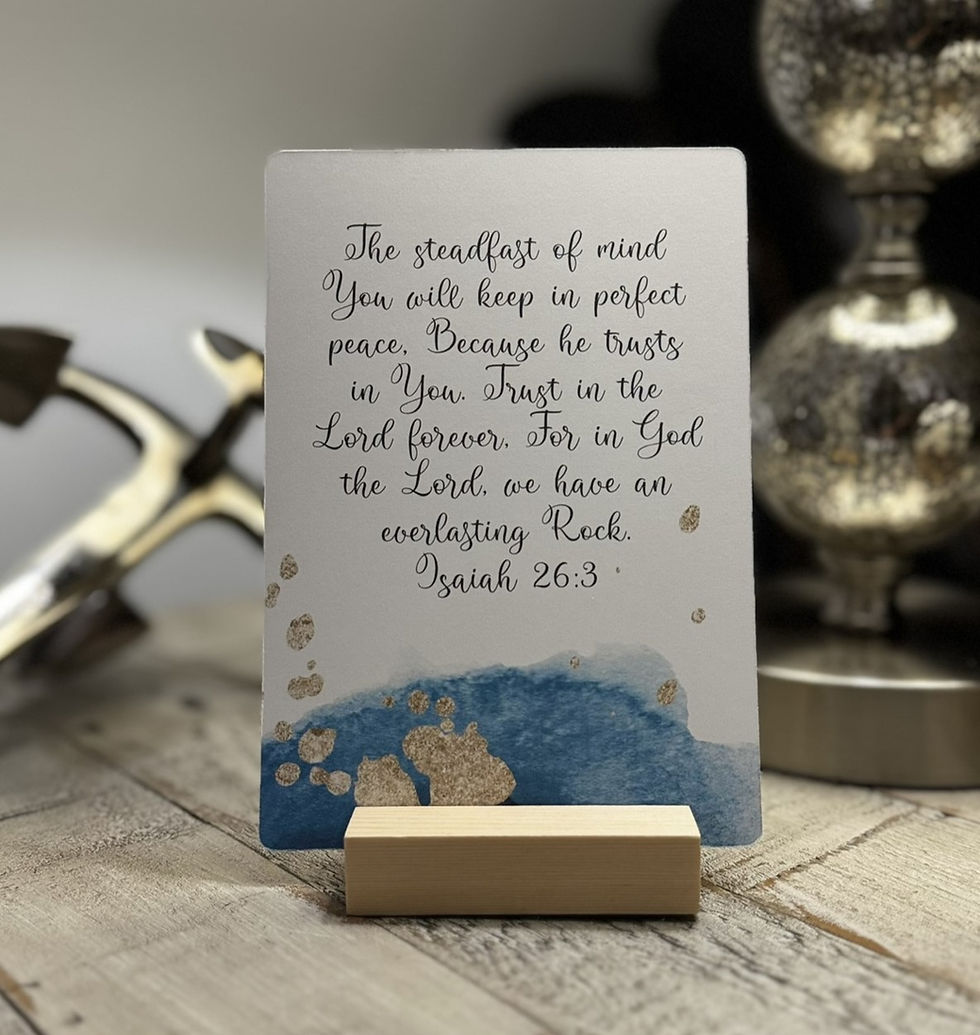 The steadfast of mind
You will keep in perfect
peace, Because he trusts
in You. Trust in the
Lord forever, For in God
the Lord, we have an
everlasting Rock.
Isaiah 26:3